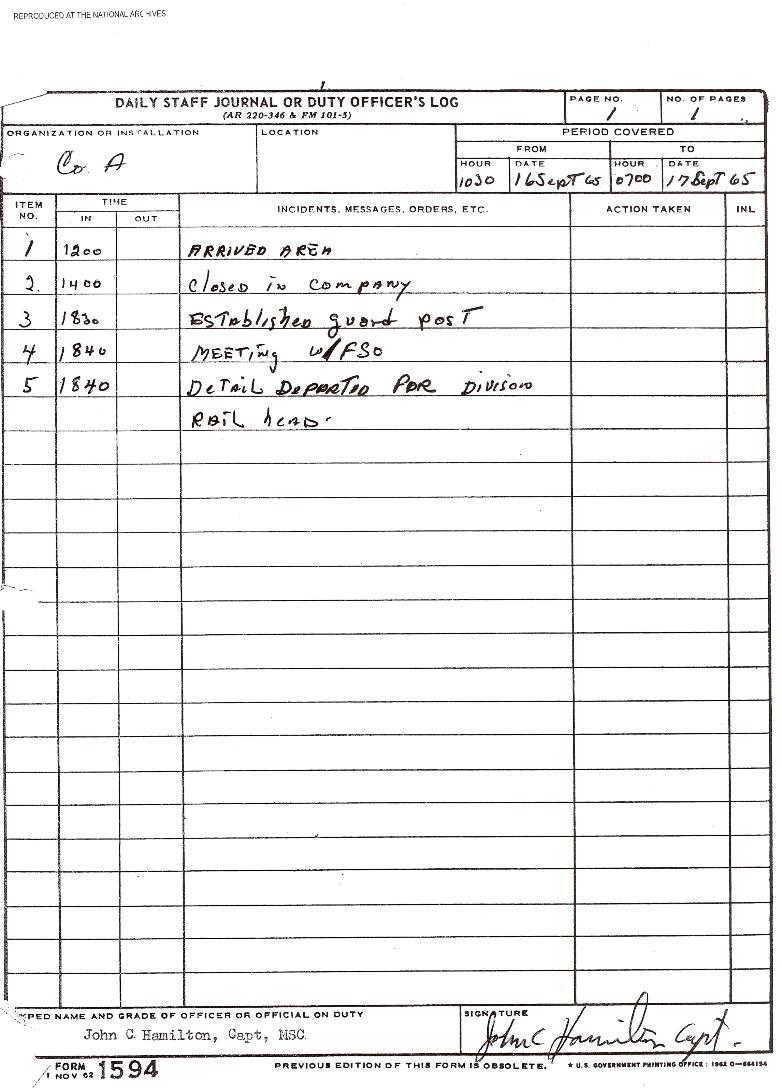 REPRODUCED AT THE NATIONAL ARCHIVES
1
DAILY STAFF JOURNAL OR DUTY OFFICER'S LOG
(AR 220-346 & FM 101-5)
PAGE NO.
1
NO. OF PAGES
1
ORGANIZATION OR INSTALLATION
Co. A
LOCATION
PERIOD COVERED
FROM
TO
HOUR
DATE
HOUR
DATE
1030
16 Sept 65
0700
17 Sept 65
ITEM NO.
TIME
IN
OUT
INCIDENTS, MESSAGES, ORDERS, ETC.
ACTION TAKEN
INL
1 1200 ARRIVED AREA
2. 1400 Closed in company
3 1830 Established guard post
4 1840 MEETING w/FSO
5 1840 DETAIL DEPARTED FOR DIVISION
RAIL head.
PED NAME AND GRADE OF OFFICER OR OFFICIAL ON DUTY
John C. Hamilton, Capt, MSC
SIGNATURE
John C Hamilton Capt.
FORM 1 NOV 62 1594
PREVIOUS EDITION OF THIS FORM IS OBSOLETE.
★ U.S. GOVERNMENT PRINTING OFFICE : 1962 O—664154